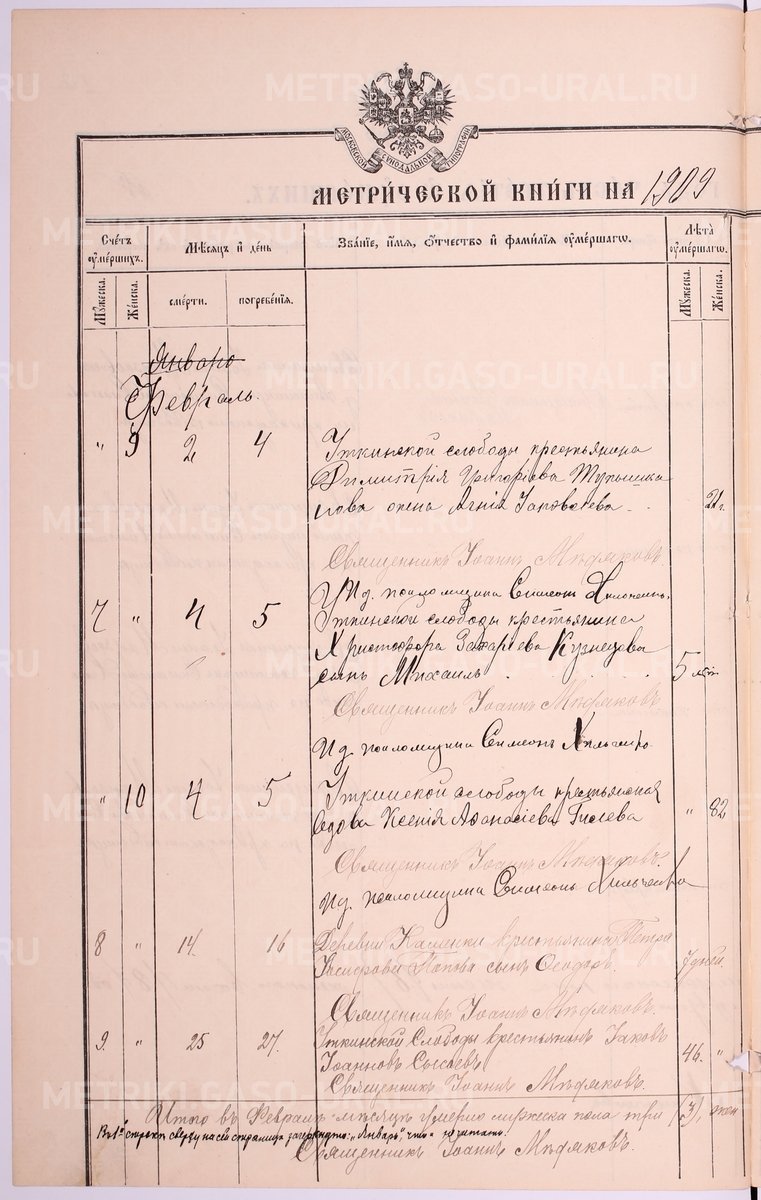 METRIKI.GASO-URAL.RU
МОСКОВСКОЙ СѴНОДАЛЬНОЙ ТИПОГРАФІИ
МЕТРИ́ЧЕСКОЙ КНИ́ГИ НА 1909
Сче́тъ ᲂу҆ме́ршихъ.
Мѣ́сяцъ и҆ де́нь
Зва́нїе, и҆́мя, ѻ҆́тчество и҆ фами́лїя ᲂу҆ме́ршагѡ.
Лѣ́та ᲂу҆ме́ршагѡ.
Мꙋ́жеска.
Же́нска.
сме́рти.
погребе́нїя.
Мꙋ́жеска.
Же́нска.
Январь
Февраль.
" 9 2 4 Уткинской слободы крестьянина
Димитрія Григоріева
жена Агнія Іаковлева 21 г.
Священникъ Іоаннъ Мѣдяковъ.
И. д. псаломщика Симеонъ
7 " 4 5 Уткинской слободы крестьянина
Христофора Захаріева Кузнецова
сынъ Михаилъ 5
Священникъ Іоаннъ Мѣдяковъ.
И. д. псаломщика Симеонъ
" 10 4 5 Уткинской слободы крестьянская
вдова Ксенія Аѳанасіева " 82
Священникъ Іоаннъ Мѣдяковъ.
И. д. псаломщика Симеонъ
8 " 14. 16 Деревни Каменки крестьянина Петра
Попова сынъ Ѳеодоръ. 7 дней.
Священникъ Іоаннъ Мѣдяковъ.
9. " 25 27. Уткинской Слободы крестьянинъ Іаковъ
Іоанновъ Сысоевъ 46. "
Священникъ Іоаннъ Мѣдяковъ.
Итого въ Февралѣ мѣсяцѣ умерло мужеска пола три (3), жен
Въ 1й строкѣ сверху на сей страницѣ зачеркнуто: "Январь", что не читать.
Священникъ Іоаннъ Мѣдяковъ.